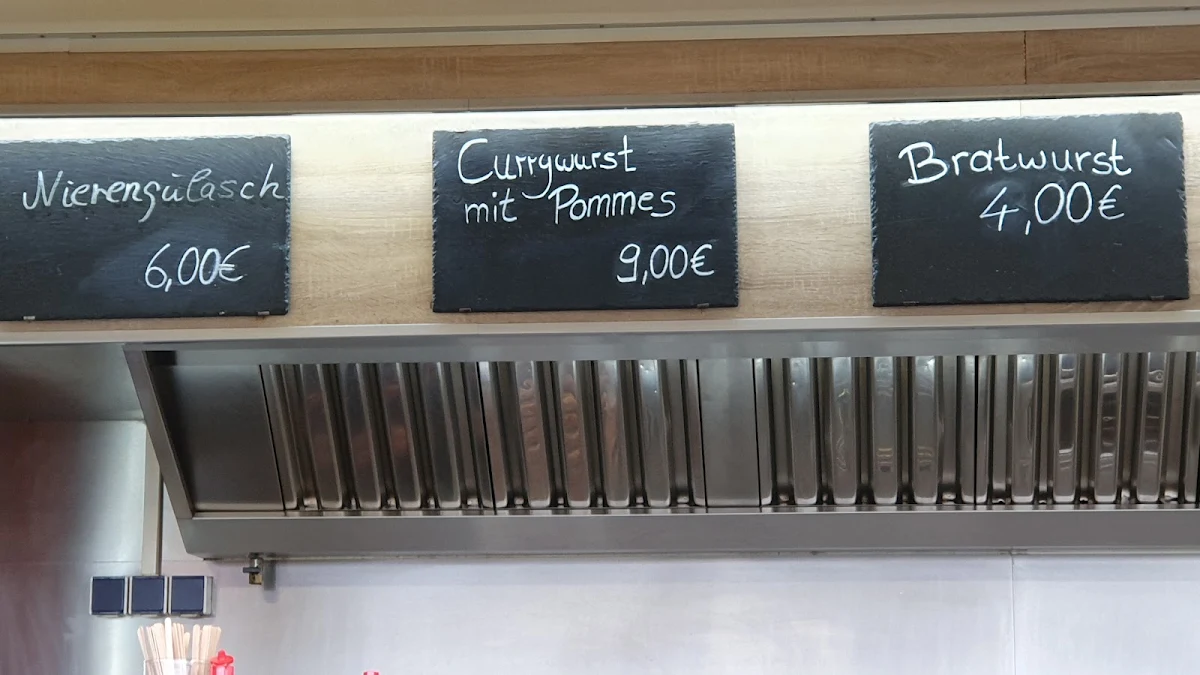 Nierengulasch
6,00€
Currywurst
mit Pommes
9,00€
Bratwurst
4,00€